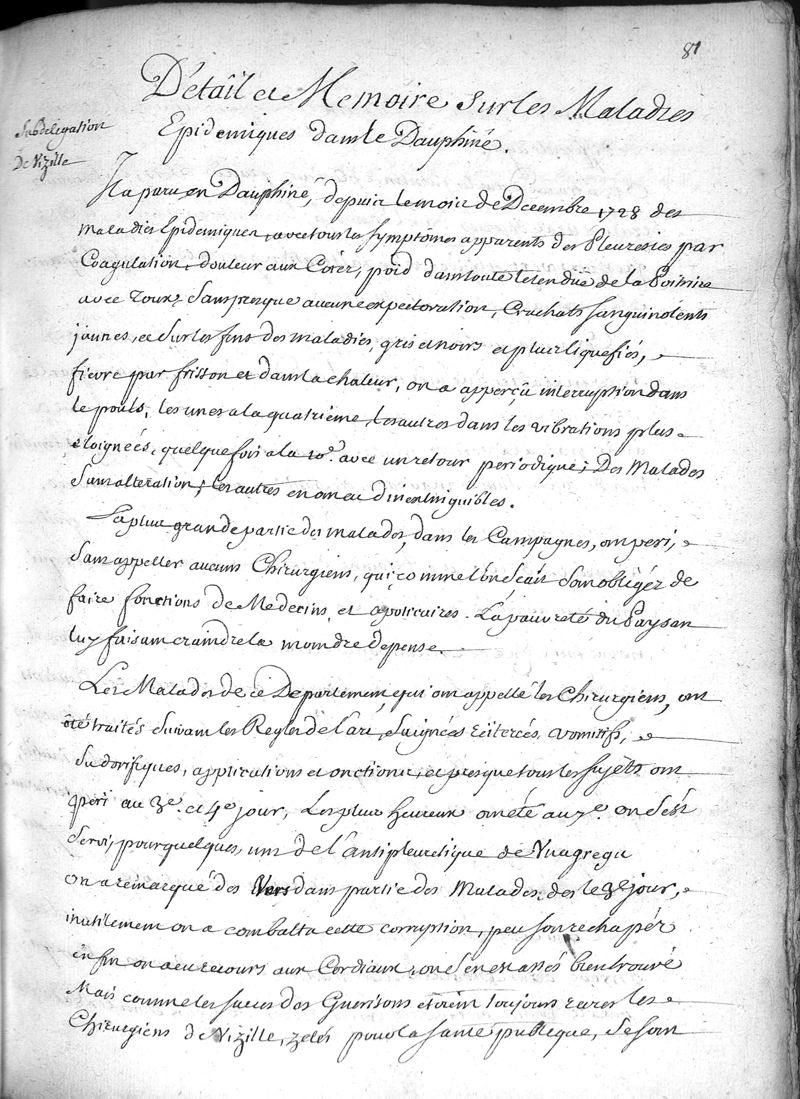 81
Détail et Memoire sur les Maladies
Epidemiques dans le Dauphiné.
Subdelegation
De Vizille
Il a paru en Dauphiné, depuis le mois de Decembre 1728 des
maladies Epidemiques, avec tous les symptômes apparents des Pleuresies par
Coagulation, douleur aux Cotéz, poid dans toute letendüe de la Poitrine
avec Toux, sans presque aucune expectoration, Crachats sanguinolents
jaunes, et sur les fins des maladies, gris et noirs et plus liquefiés,
fievre par frisson et dans la chaleur, on a apperçû interruption dans
le pouls, les unes a la quatrieme, les autres dans les vibrations plus
eloignées, quelque fois a la 10e. avec un retour periodique; Des Malades
sans alteration; les autres en ont eu d'inextinguibles.
La plus grande partie des malades, dans les Campagnes, ont peri,
sans appeller aucuns Chirurgiens, qui, comme l'on sçait sont obligéz de
faire fonctions de Medecins et apoticaires. La pauvreté du Paysan
luy faisant craindre la moindre depense.
Les Malades de ce Departement, qui ont appellé les Chirurgiens, ont
êté traités suivant les Regles de l'art, saignées reiterées, vomitifs,
sudorifiques, applications et onctions, et presque tous les sujets ont
peri au 3e. et 4e jour, Les plus heureux ont été au 7e. on s'est
servi, pour quelques, uns de l'antipleuretique de
on a remarqué des Vers dans partie des Malades, des le 3e jour,
inutilement on a combattu cette corruption, peu sont rechapéz
enfin on a eu recours aux Cordiaux, on s'en est assés bien trouvé
Mais comme les succes des Guerisons etoient toujours rares les
Chirurgiens de Vizille, zelés pour la santé publique, se sont